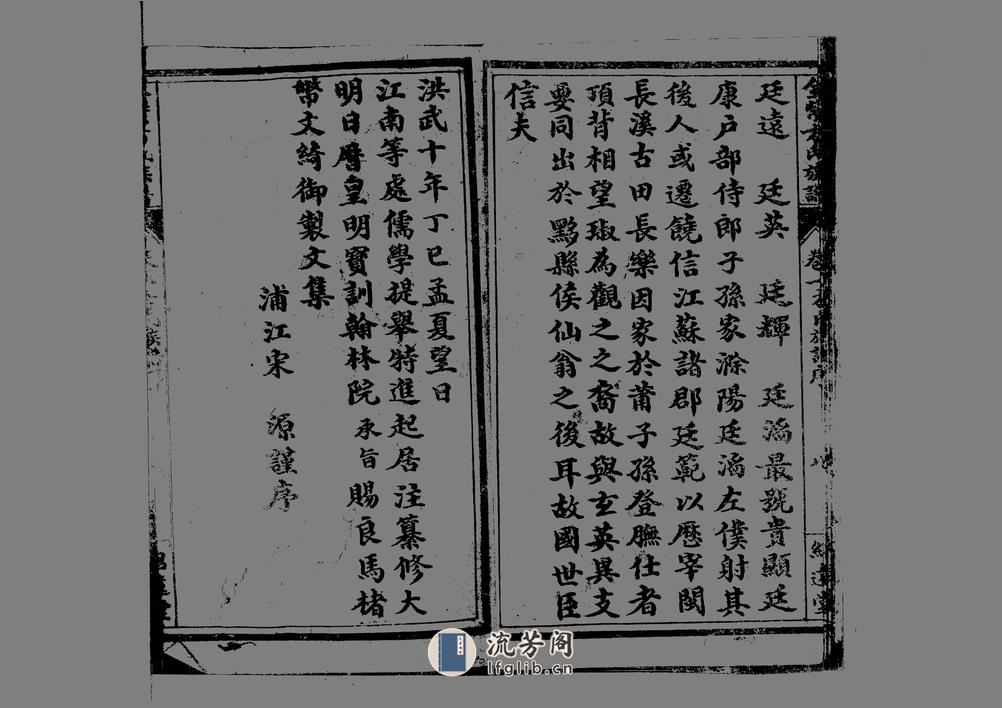 廷遠 廷英 廷輝 廷滔最號貴顯廷
康戶部侍郎子孫家滁陽廷滔左僕射其
後人或遷饒信江蘇諸郡廷範以歷宰閩
長溪古田長樂因家於莆子孫登膴仕者
項背相望琡為觀之之裔故與玄英異支
要同出於黟縣侯仙翁之後耳故國世臣
信夫
洪武十年丁巳孟夏望日
江南等處儒學提舉特進起居注纂修大
明日曆皇明寶訓翰林院承旨賜良馬楮
幣文綺御製文集
浦江宋 濂謹序
流芳阁
lfglib.cn